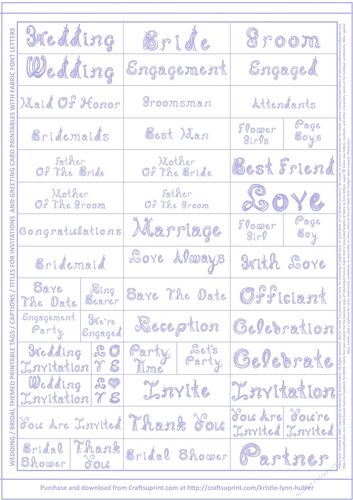 Wedding
Bride
Groom
Wedding
Engagement
Engaged
Maid Of Honor
Groomsman
Attendants
Bridemaids
Best Man
Flower
Girls
Page
Boys
Father
Of The Bride
Mother
Of The Bride
Best Friend
Mother
Of The Groom
Father
Of The Groom
Love
Congratulations
Marriage
Flower
Girl
Page
Boy
Bridemaid
Love Always
With Love
Save
The Date
Ring
Bearer
Save The Date
Officiant
Engagement
Party
We're
Engaged
Reception
Celebration
Wedding
Invitation
LO
VE
Party
Time
Let's
Party
Celebrate
Wedding
Invitation
L
VE
Invite
Invitation
You Are Invited
Thank You
You Are
Invited
You're
Invited
Bridal
Shower
Thank
You
Bridal Shower
Partner
WEDDING / BRIDAL THEMED PRINTABLE TAGS / CAPTIONS / TITLES FOR INVITATIONS AND GREETING CARD PRINTABLES WITH FABRIC FONT LETTERS
Purchase and download from Craftsuprint.com at http://craftsuprint.com/kristie-lynn-hubler